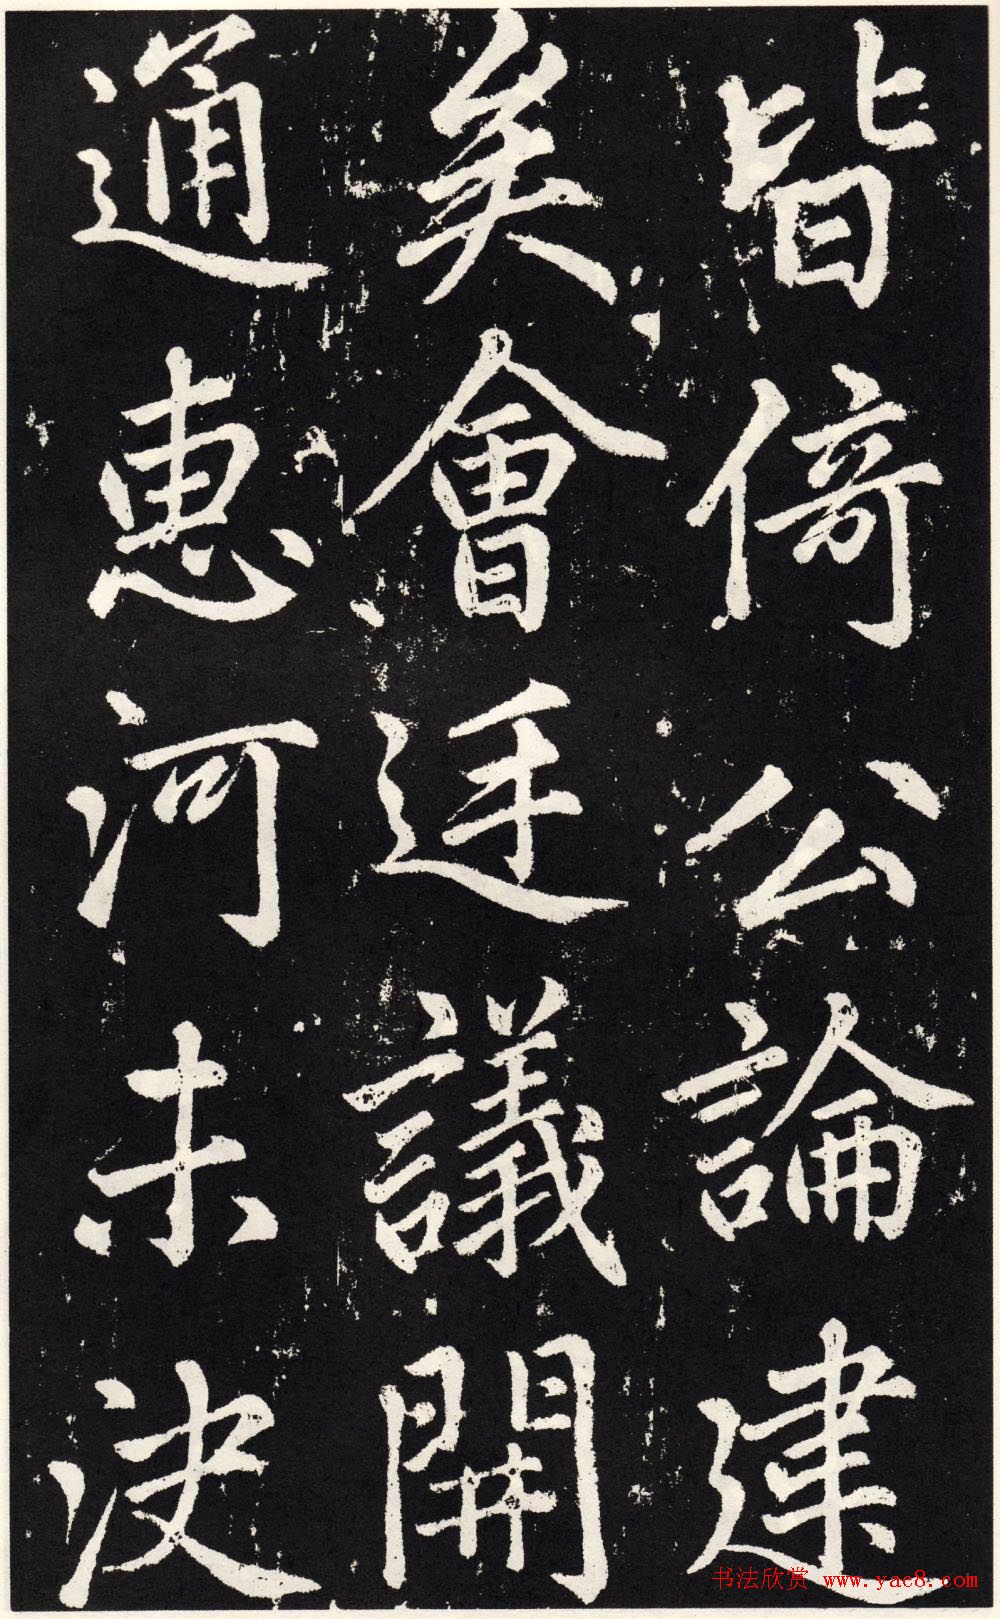 皆倚公論建
矣會廷議開
通惠河未決
书法欣赏 www.yac8.com